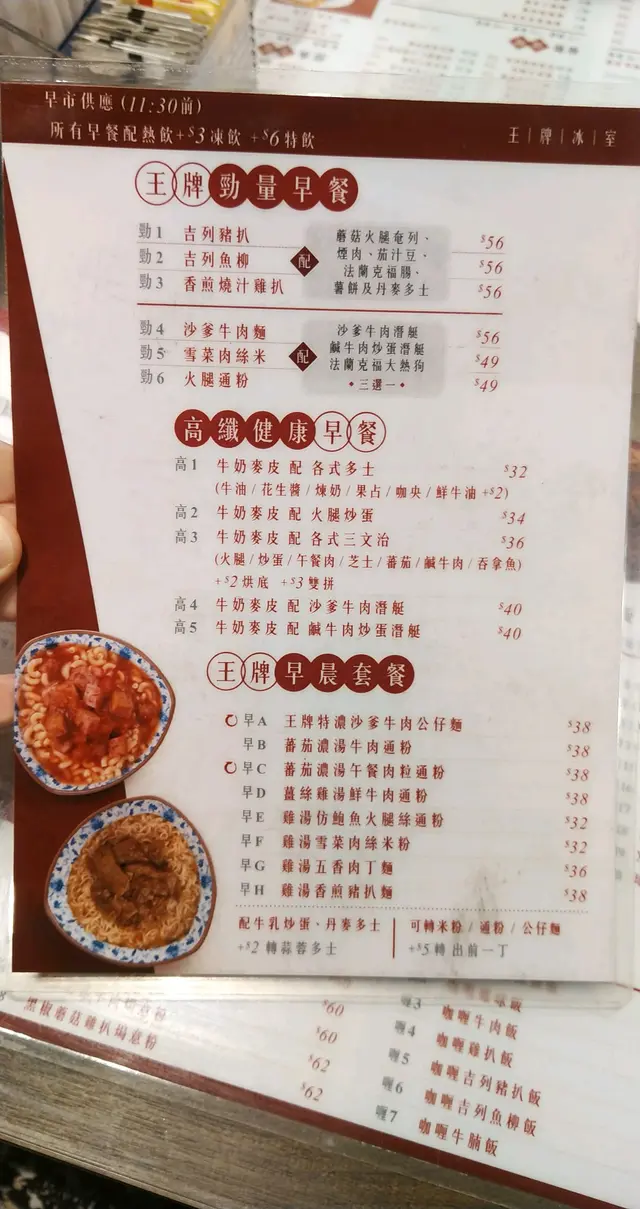 早市供應 (11:30前)
所有早餐配熱飲+$3凍飲 +$6特飲
王|牌|冰|室
王牌勁量早餐
勁1 吉列豬扒 $56
勁2 吉列魚柳 $56
勁3 香煎燒汁雞扒 $56
配
蘑菇火腿奄列、
煙肉、茄汁豆、
法蘭克福腸、
薯餅及丹麥多士
勁4 沙爹牛肉麵 $56
勁5 雪菜肉絲米 $49
勁6 火腿通粉 $49
配
沙爹牛肉潛艇
鹹牛肉炒蛋潛艇
法蘭克福大熱狗
•三選一•
高纖健康早餐
高1 牛奶麥皮 配 各式多士 $32
(牛油/花生醬/煉奶/果占/咖央/鮮牛油+$2)
高2 牛奶麥皮 配 火腿炒蛋 $34
高3 牛奶麥皮 配 各式三文治 $36
(火腿/炒蛋/午餐肉/芝士/蕃茄/鹹牛肉/吞拿魚)
+$2 烘底 +$3 雙拼
高4 牛奶麥皮 配 沙爹牛肉潛艇 $40
高5 牛奶麥皮 配 鹹牛肉炒蛋潛艇 $40
王牌早晨套餐
早A 王牌特濃沙爹牛肉公仔麵 $38
早B 蕃茄濃湯牛肉通粉 $38
早C 蕃茄濃湯午餐肉粒通粉 $38
早D 薑絲雞湯鮮牛肉通粉 $38
早E 雞湯仿鮑魚火腿絲通粉 $32
早F 雞湯雪菜肉絲米粉 $32
早G 雞湯五香肉丁麵 $36
早H 雞湯香煎豬扒麵 $38
配牛乳炒蛋、丹麥多士
+$2 轉蒜蓉多士
可轉米粉/通粉/公仔麵
+$5轉 出前一丁
$60
黑椒蘑菇雞扒焗意粉 $60
$62
$62
喱3 咖喱牛肉飯
喱4 咖喱雞扒飯
喱5 咖喱吉列豬扒飯
喱6 咖喱吉列魚柳飯
喱7 咖喱牛腩飯